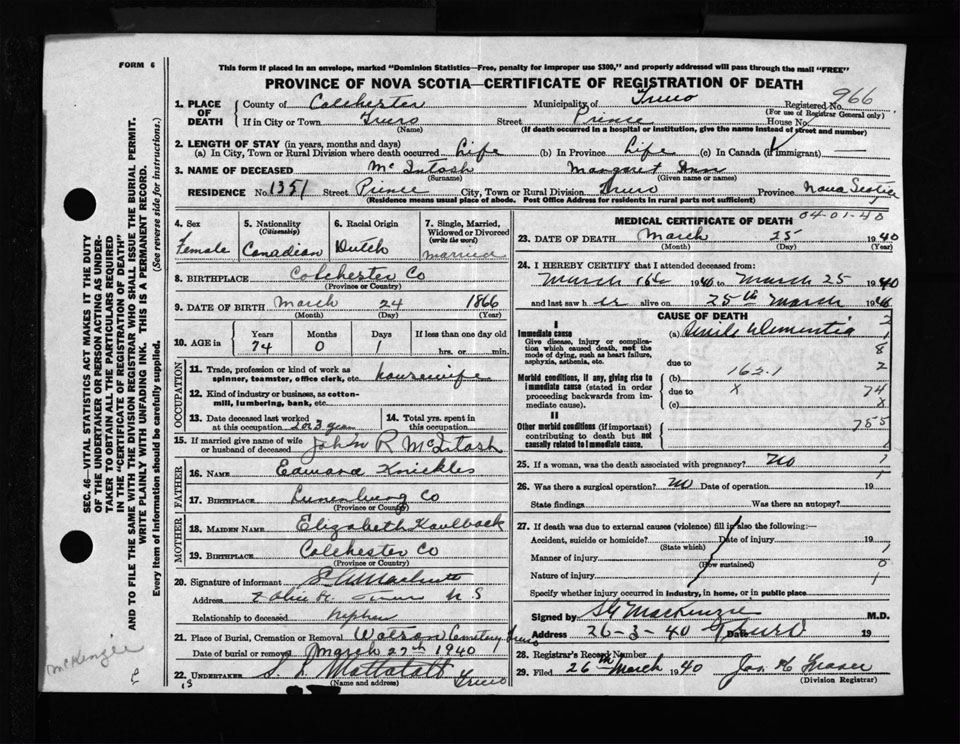 FORM 6
This form if placed in an envelope, marked "Dominion Statistics—Free, penalty for improper use $300," and properly addressed will pass through the mail "FREE"
PROVINCE OF NOVA SCOTIA—CERTIFICATE OF REGISTRATION OF DEATH
1. PLACE OF DEATH
County of Colchester Municipality of Truro Registered No. 966
(For use of Registrar General only)
If in City or Town Truro Street Prince House No.
(Name) (If death occurred in a hospital or institution, give the name instead of street and number)
2. LENGTH OF STAY (in years, months and days)
(a) In City, Town or Rural Division where death occurred Life (b) In Province Life (c) In Canada (if immigrant)
3. NAME OF DECEASED McIntosh Margaret Ann
(Surname) (Given name or names)
RESIDENCE No. 1351 Street Prince City, Town or Rural Division Truro Province Nova Scotia
(Residence means usual place of abode. Post Office Address for residents in rural parts not sufficient)
4. Sex Female
5. Nationality (Citizenship) Canadian
6. Racial Origin Dutch
7. Single, Married, Widowed or Divorced (write the word) Married
8. BIRTHPLACE Colchester Co
(Province or Country)
9. DATE OF BIRTH March 24 1866
(Month) (Day) (Year)
10. AGE in Years Months Days If less than one day old
74 0 1 hrs. or min.
OCCUPATION
11. Trade, profession or kind of work as spinner, teamster, office clerk, etc. housewife
12. Kind of industry or business, as cotton-mill, lumbering, bank, etc.
13. Date deceased last worked at this occupation 2 or 3 years
14. Total yrs. spent in this occupation
15. If married give name of wife or husband of deceased John R McIntosh
FATHER
16. NAME Edward Knickles
17. BIRTHPLACE Lunenburg Co
(Province or Country)
MOTHER
18. MAIDEN NAME Elizabeth Kaulback
19. BIRTHPLACE Colchester Co
(Province or Country)
20. Signature of informant
Address N S
Relationship to deceased Nephew
21. Place of Burial, Cremation or Removal Watson Cemetery Truro
Date of burial or removal March 27th 1940
22. UNDERTAKER S. L. Mattatall Truro
(Name and address)
MEDICAL CERTIFICATE OF DEATH 04-01-40
23. DATE OF DEATH March 25 1940
(Month) (Day) (Year)
24. I HEREBY CERTIFY that I attended deceased from
March 16 1940 to March 25 1940
and last saw her alive on 25th March 1940
CAUSE OF DEATH
I
Immediate cause
Give disease, injury or complication which caused death, not the mode of dying, such as heart failure, asphyxia, asthenia, etc.
(a) Senile dementia
due to
Morbid conditions, if any, giving rise to immediate cause (stated in order proceeding backwards from immediate cause).
(b) 162.1
due to X
(c)
II
Other morbid conditions (if important) contributing to death but not causally related to immediate cause.
2
8
2
74
X
755
1
25. If a woman, was the death associated with pregnancy? No
26. Was there a surgical operation? No Date of operation 19
State findings Was there an autopsy?
27. If death was due to external causes (violence) fill in also the following:—
Accident, suicide or homicide? Date of injury 19
(State which)
Manner of injury
(How sustained)
Nature of injury
Specify whether injury occurred in industry, in home, or in public place
Signed by MacKenzie M.D.
Address 26-3-40 Truro Date 19
28. Registrar's Record Number
29. Filed 26th March 1940 Jas. H Fraser
(Division Registrar)
SEC. 46—VITAL STATISTICS ACT MAKES IT THE DUTY
OF THE UNDERTAKER OR PERSON ACTING AS UNDER-
TAKER TO OBTAIN ALL THE PARTICULARS REQUIRED
IN THE "CERTIFICATE OF REGISTRATION OF DEATH"
AND TO FILE THE SAME WITH THE DIVISION REGISTRAR WHO SHALL ISSUE THE BURIAL PERMIT.
WRITE PLAINLY WITH UNFADING INK. THIS IS A PERMANENT RECORD.
Every item of Information should be carefully supplied. (See reverse side for instructions.)
McKenzie